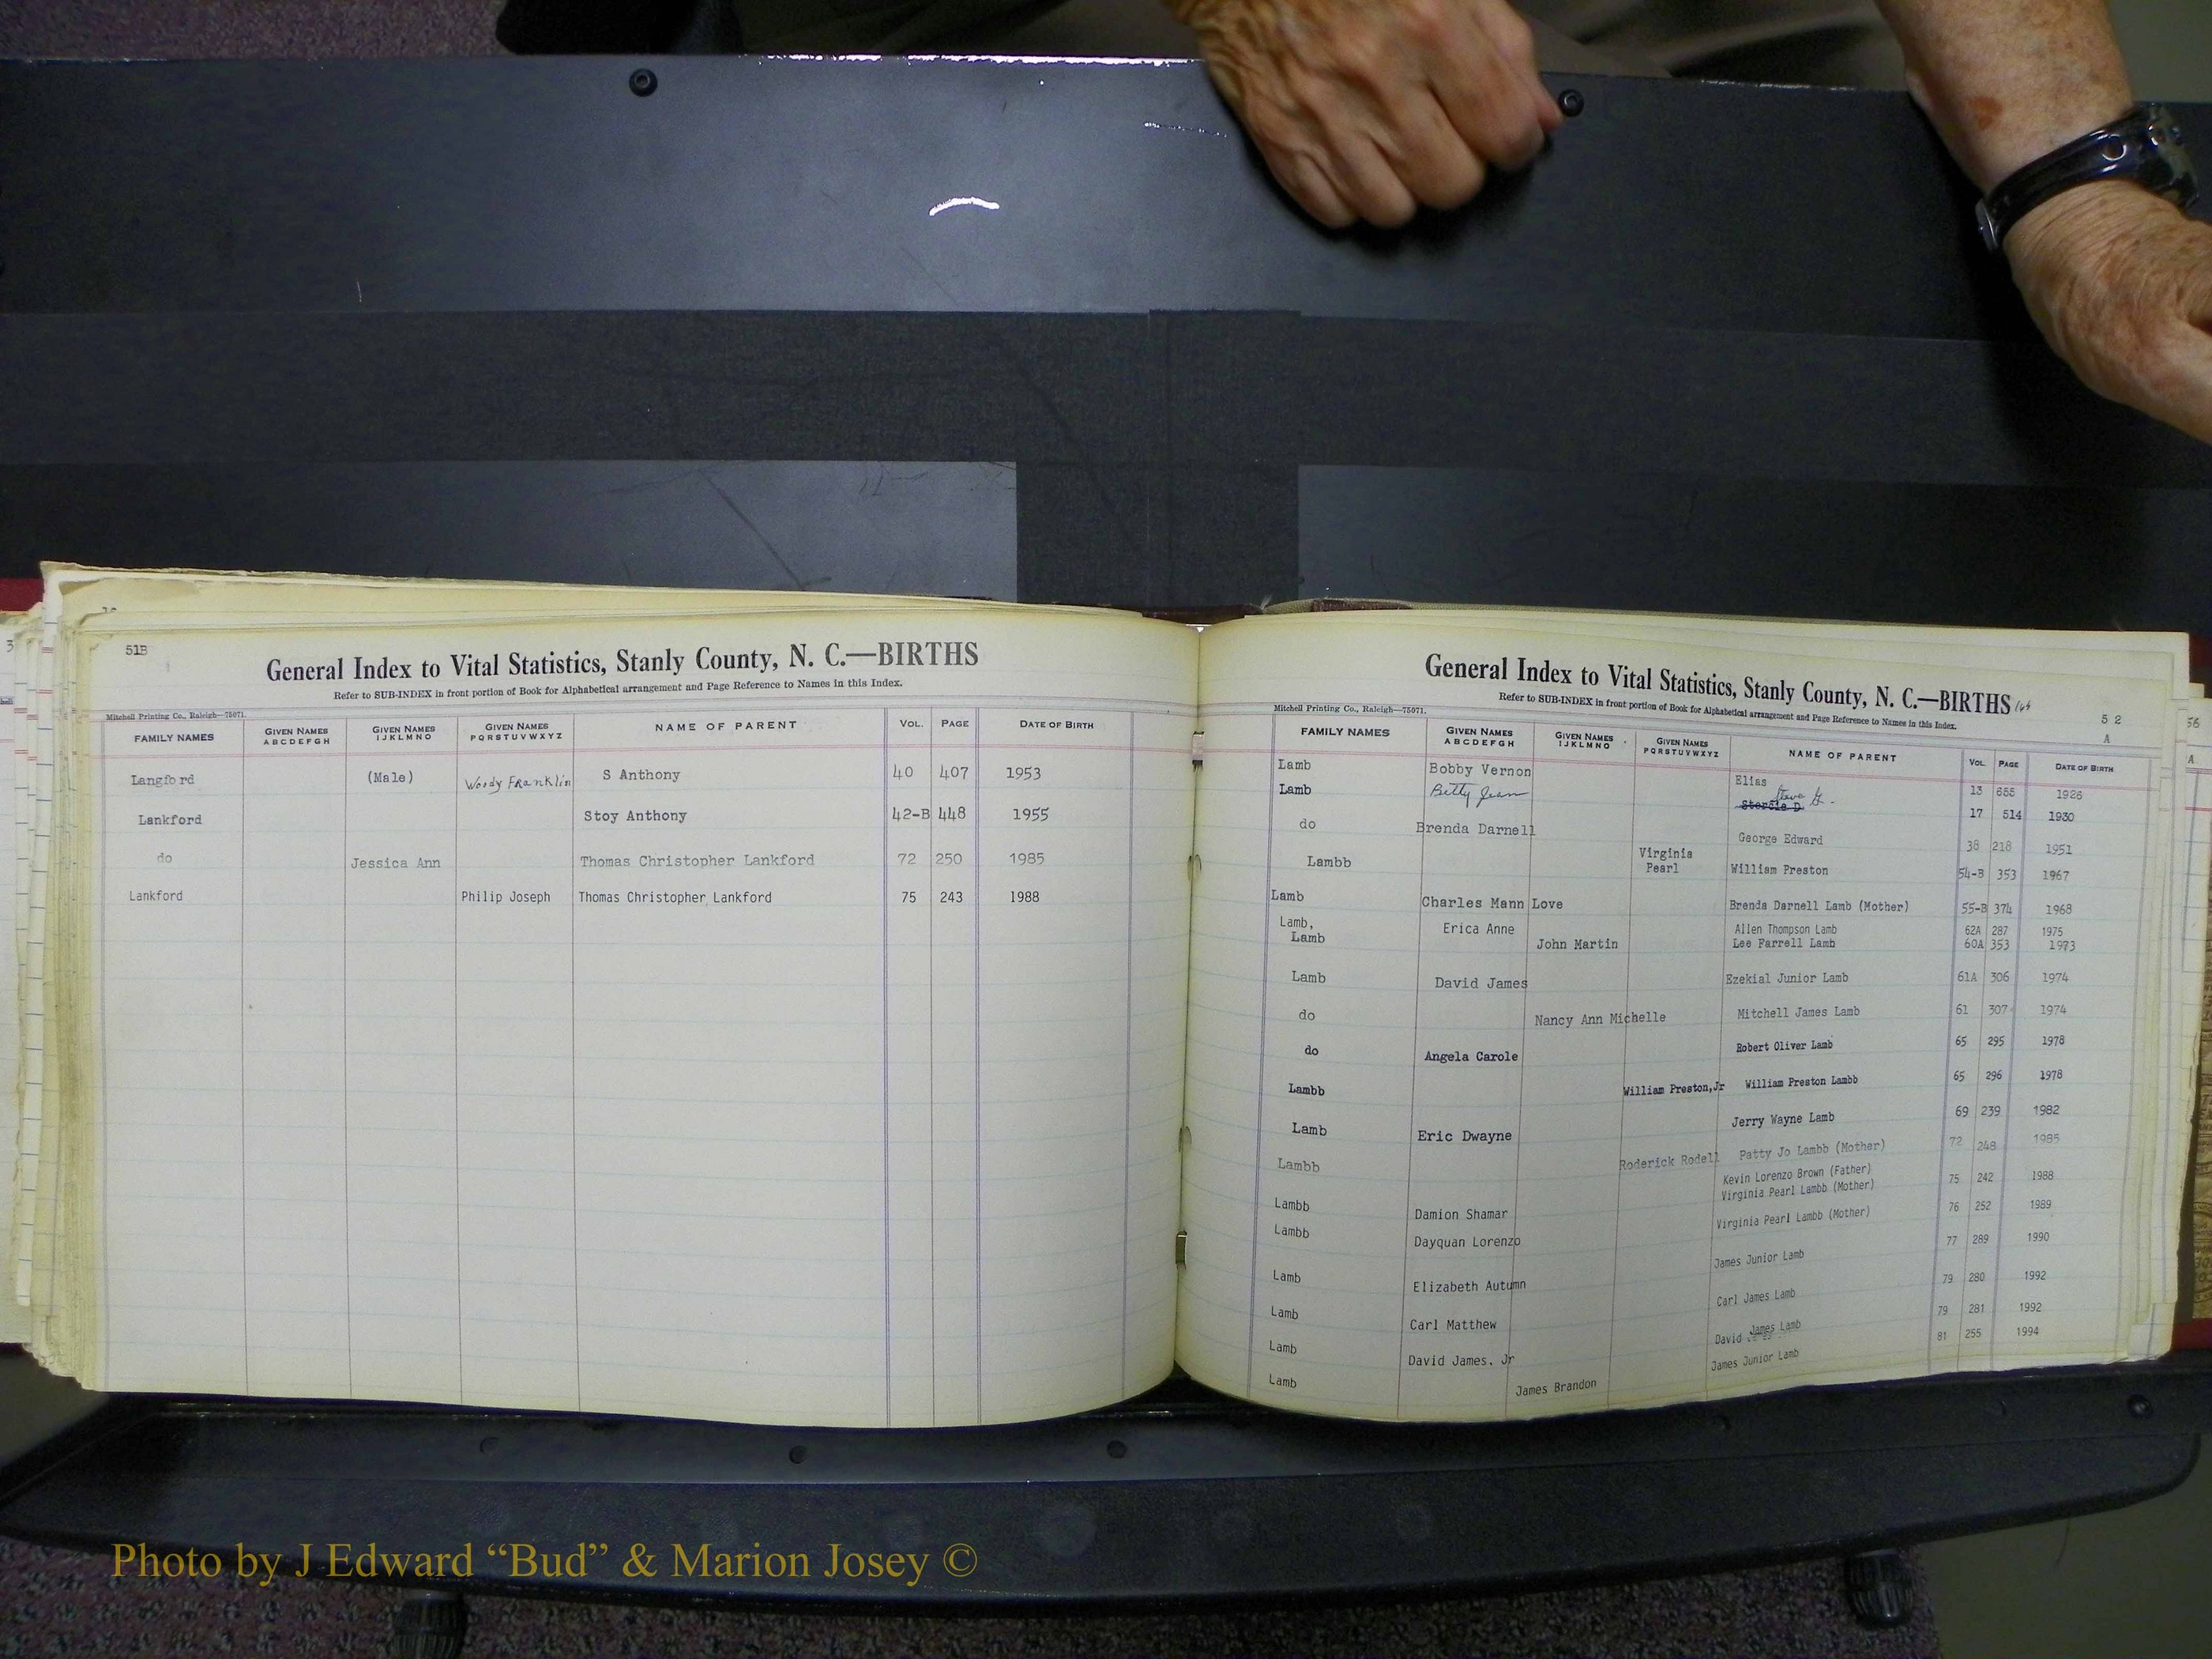 51B
General Index to Vital Statistics, Stanly County, N. C.—BIRTHS
Refer to SUB-INDEX in front portion of Book for Alphabetical arrangement and Page Reference to Names in this Index.
Mitchell Printing Co., Raleigh—75071.
FAMILY NAMES GIVEN NAMES ABCDEFGH GIVEN NAMES IJKLMNO GIVEN NAMES PQRSTUVWXYZ NAME OF PARENT VOL. PAGE DATE OF BIRTH
Langford (Male) Woody Franklin S Anthony 40 407 1953
Lankford Stoy Anthony 42-B 448 1955
do Jessica Ann Thomas Christopher Lankford 72 250 1985
Lankford Philip Joseph Thomas Christopher Lankford 75 243 1988
General Index to Vital Statistics, Stanly County, N. C.—BIRTHS
Refer to SUB-INDEX in front portion of Book for Alphabetical arrangement and Page Reference to Names in this Index.
52
A
Mitchell Printing Co., Raleigh—75071.
FAMILY NAMES GIVEN NAMES ABCDEFGH GIVEN NAMES IJKLMNO GIVEN NAMES PQRSTUVWXYZ NAME OF PARENT VOL. PAGE DATE OF BIRTH
Lamb Bobby Vernon Elias 13 655 1926
Lamb Betty Jean Steve 17 514 1930
do Brenda Darnell George Edward 38 218 1951
Lambb Virginia Pearl William Preston 54-B 353 1967
Lamb Charles Mann Love Brenda Darnell Lamb (Mother) 55-B 374 1968
Lamb, Erica Anne Allen Thompson Lamb 62A 287 1975
Lamb John Martin Lee Farrell Lamb 60A 353 1973
Lamb David James Ezekial Junior Lamb 61A 306 1974
do Nancy Ann Michelle Mitchell James Lamb 61 307 1974
do Angela Carole Robert Oliver Lamb 65 295 1978
Lambb William Preston,Jr William Preston Lambb 65 296 1978
Lamb Eric Dwayne Jerry Wayne Lamb 69 239 1982
Lambb Roderick Rodell Patty Jo Lambb (Mother) 72 248 1985
Lambb Damion Shamar Kevin Lorenzo Brown (Father) Virginia Pearl Lambb (Mother) 75 242 1988
Lambb Dayquan Lorenzo Virginia Pearl Lambb (Mother) 76 252 1989
Lamb Elizabeth Autumn James Junior Lamb 77 289 1990
Lamb Carl Matthew Carl James Lamb 79 280 1992
Lamb David James, Jr David James Lamb 79 281 1992
Lamb James Brandon James Junior Lamb 81 255 1994
Photo by J Edward “Bud” & Marion Josey ©